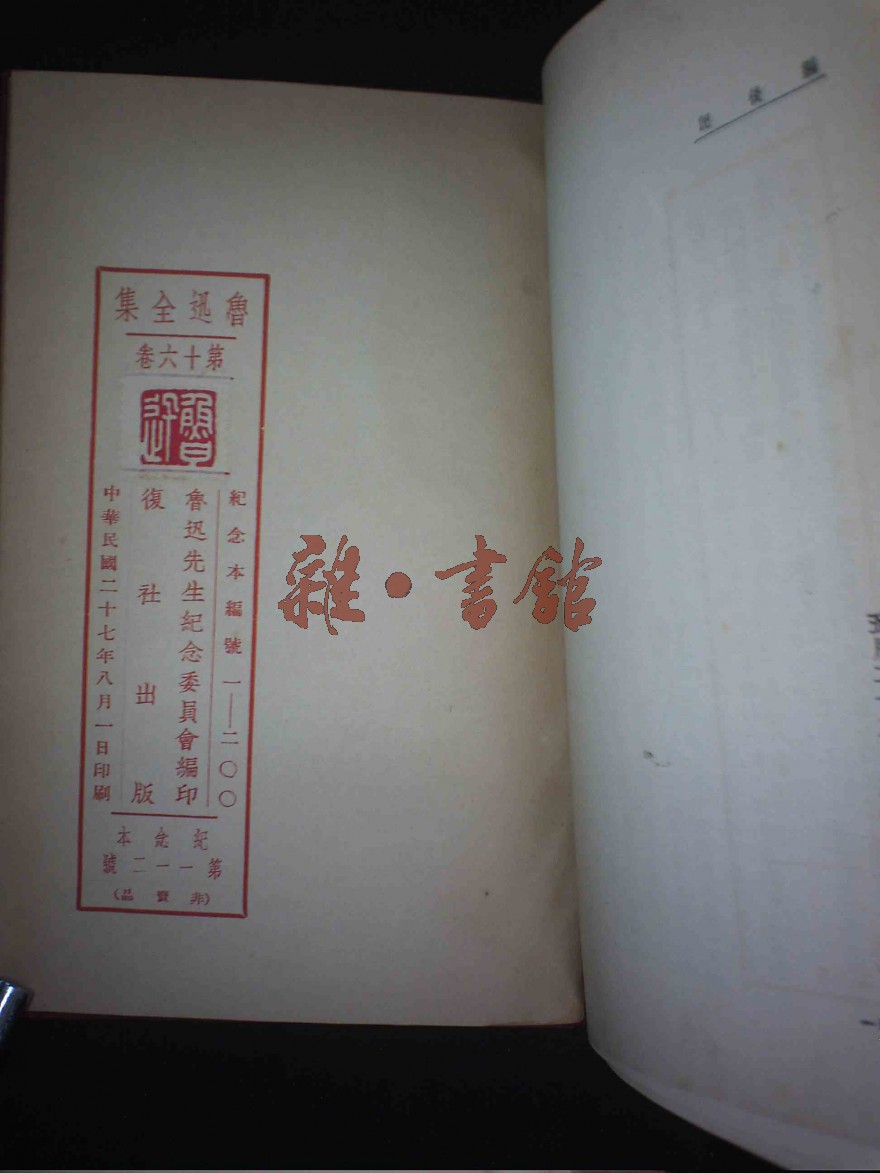 魯迅全集
第十六卷
魯迅
紀念本編號一——二〇〇
魯迅先生紀念委員會編印
復社出版
中華民國二十七年八月一日印刷
紀念本
第一一二號
(非賣品)
雜·書館
編後記